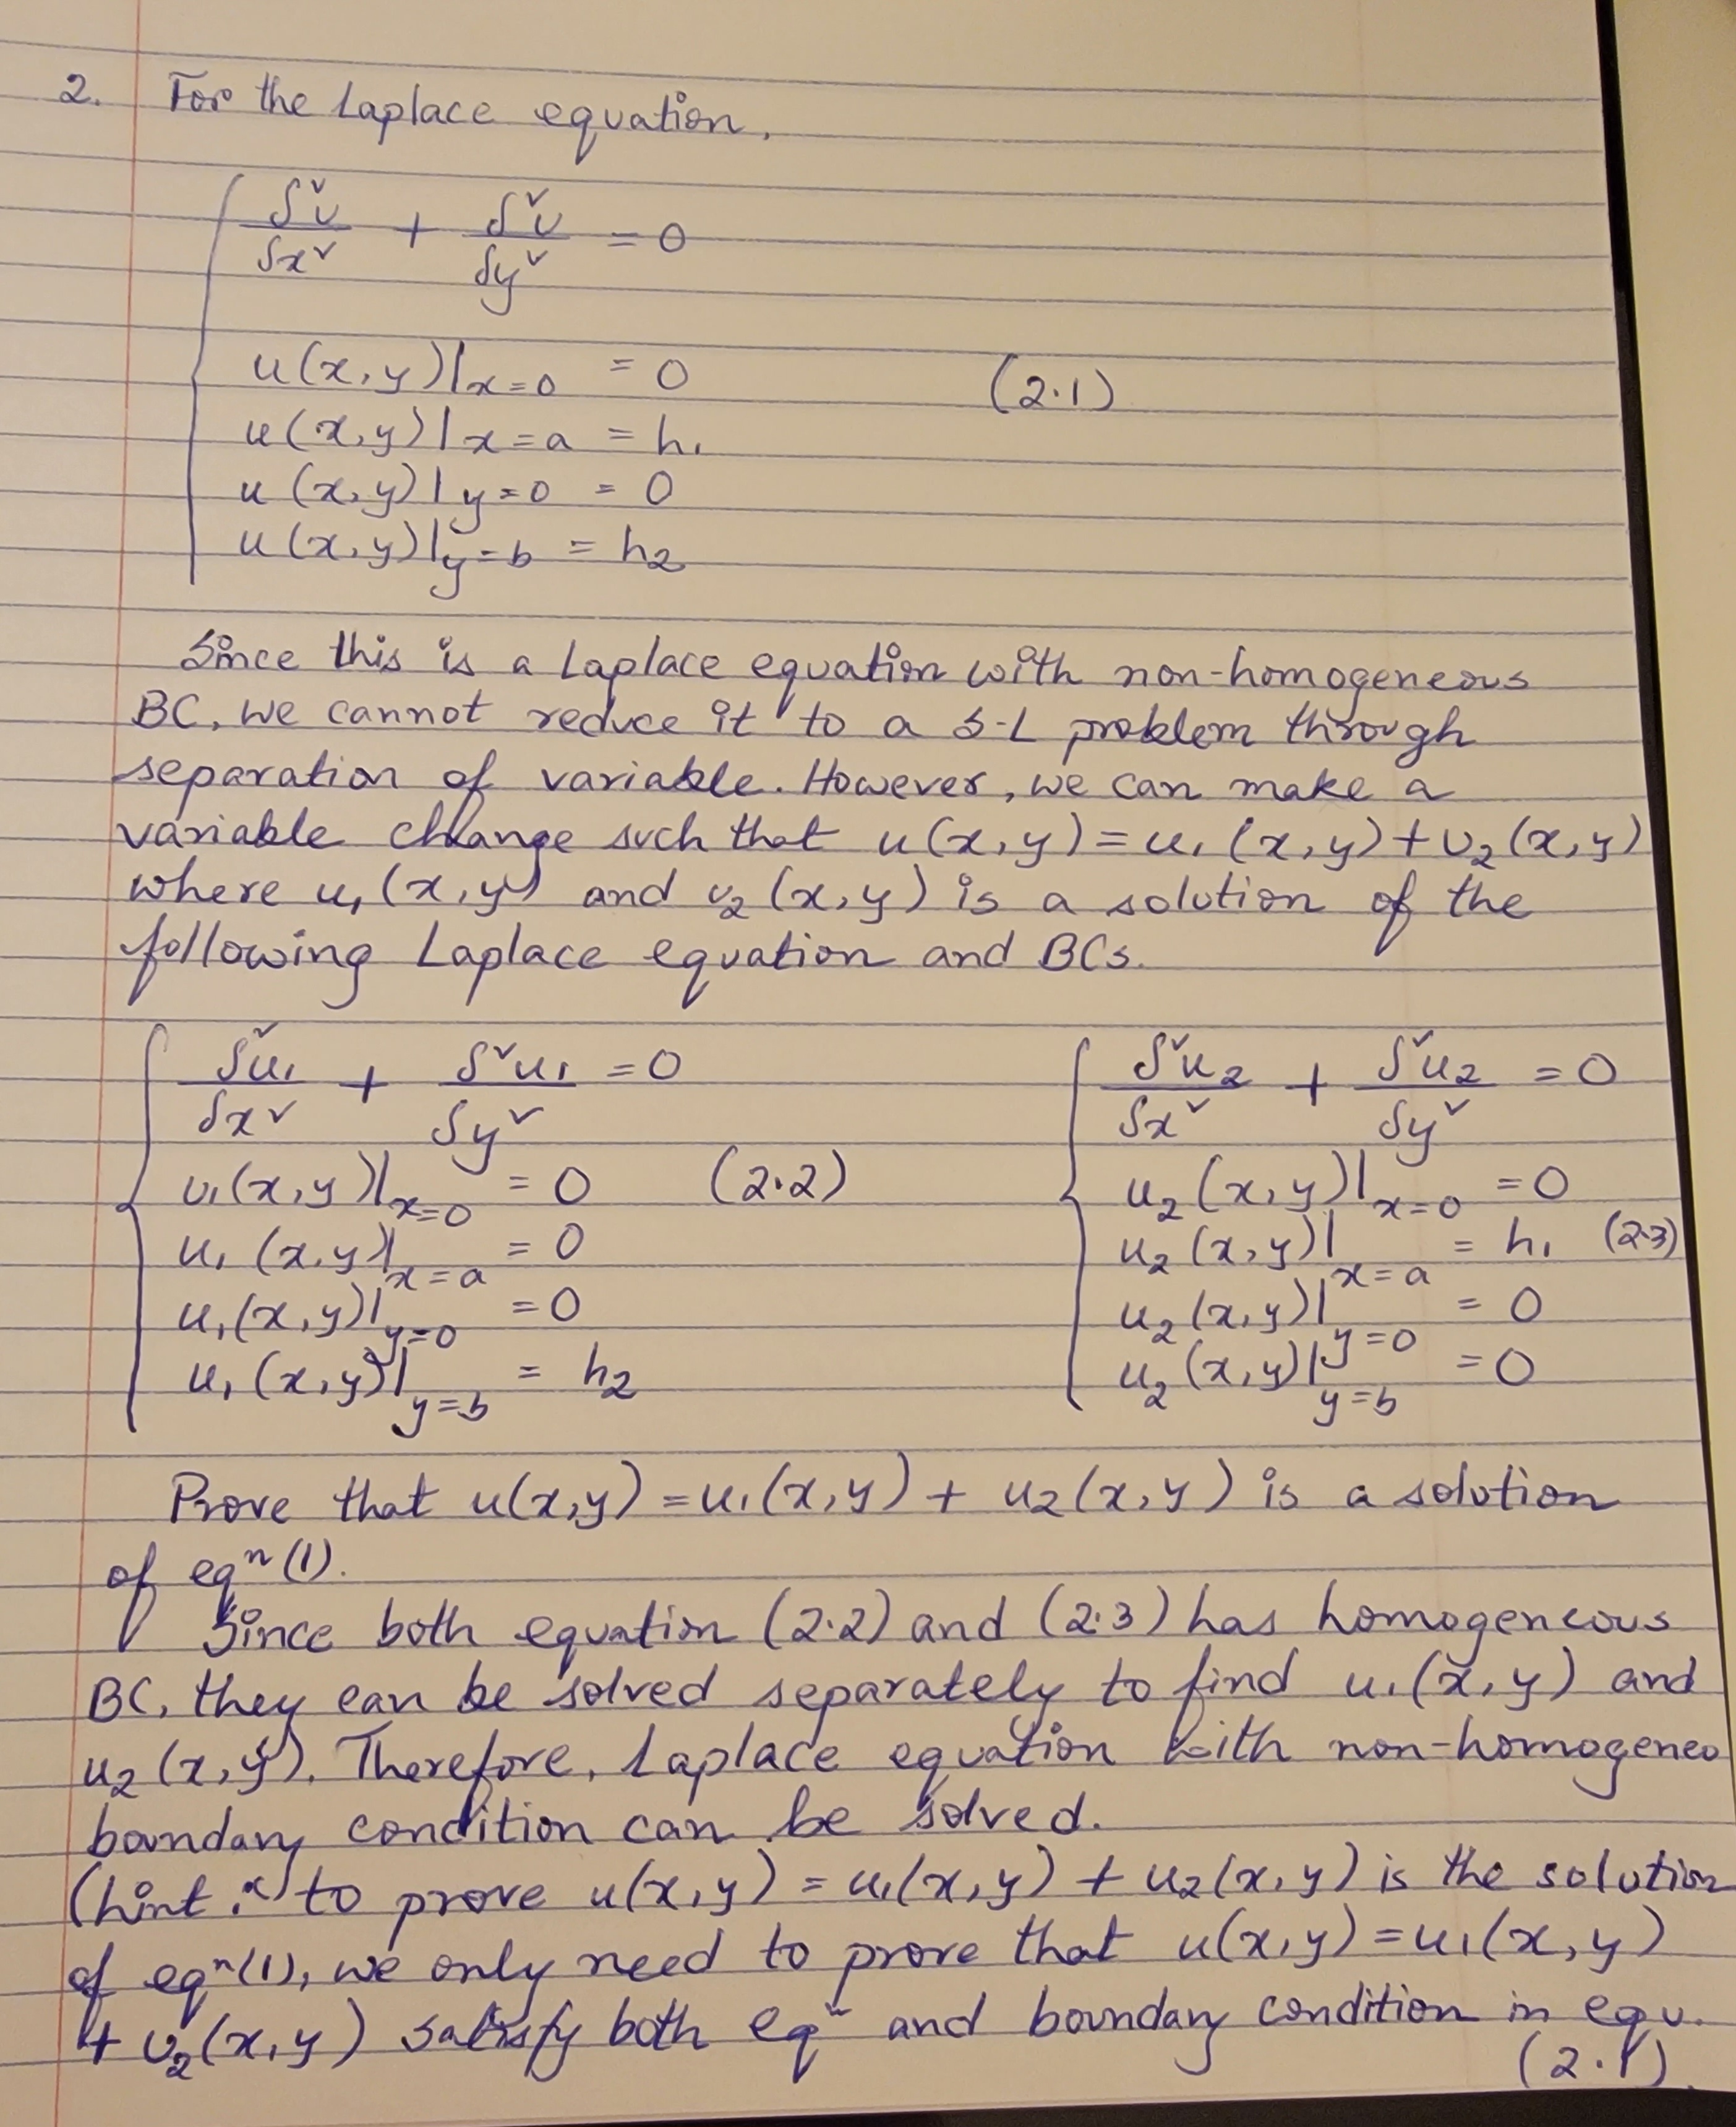 2. For the Laplace equation,
δ²u/δx² + δ²u/δy² = 0
u(x,y)|x=0 = 0 (2.1)
u(x,y)|x=a = h₁
u(x,y)|y=0 = 0
u(x,y)|y=b = h₂
Since this is a Laplace equation with non-homogeneous
BC, we cannot reduce it to a S-L problem through
separation of variable. However, we can make a
variable change such that u(x,y) = u₁(x,y) + u₂(x,y)
where u₁(x,y) and u₂(x,y) is a solution of the
following Laplace equation and BCs.
δ²u₁/δx² + δ²u₁/δy² = 0 δ²u₂/δx² + δ²u₂/δy² = 0
u₁(x,y)|x=0 = 0 (2.2) u₂(x,y)|x=0 = 0
u₁(x,y)|x=a = 0 u₂(x,y)|x=a = h₁ (2.3)
u₁(x,y)|y=0 = 0 u₂(x,y)|y=0 = 0
u₁(x,y)|y=b = h₂ u₂(x,y)|y=b = 0
Prove that u(x,y) = u₁(x,y) + u₂(x,y) is a solution
of eqⁿ (1).
Since both equation (2.2) and (2.3) has homogeneous
BC, they can be solved separately to find u₁(x,y) and
u₂(x,y). Therefore, Laplace equation with non-homogeneo
boundary condition can be solved.
(hint: to prove u(x,y) = u₁(x,y) + u₂(x,y) is the solution
of eqⁿ(1), we only need to prove that u(x,y) = u₁(x,y)
+ u₂(x,y) satisfy both eqⁿ and boundary condition in equ.
(2.1).